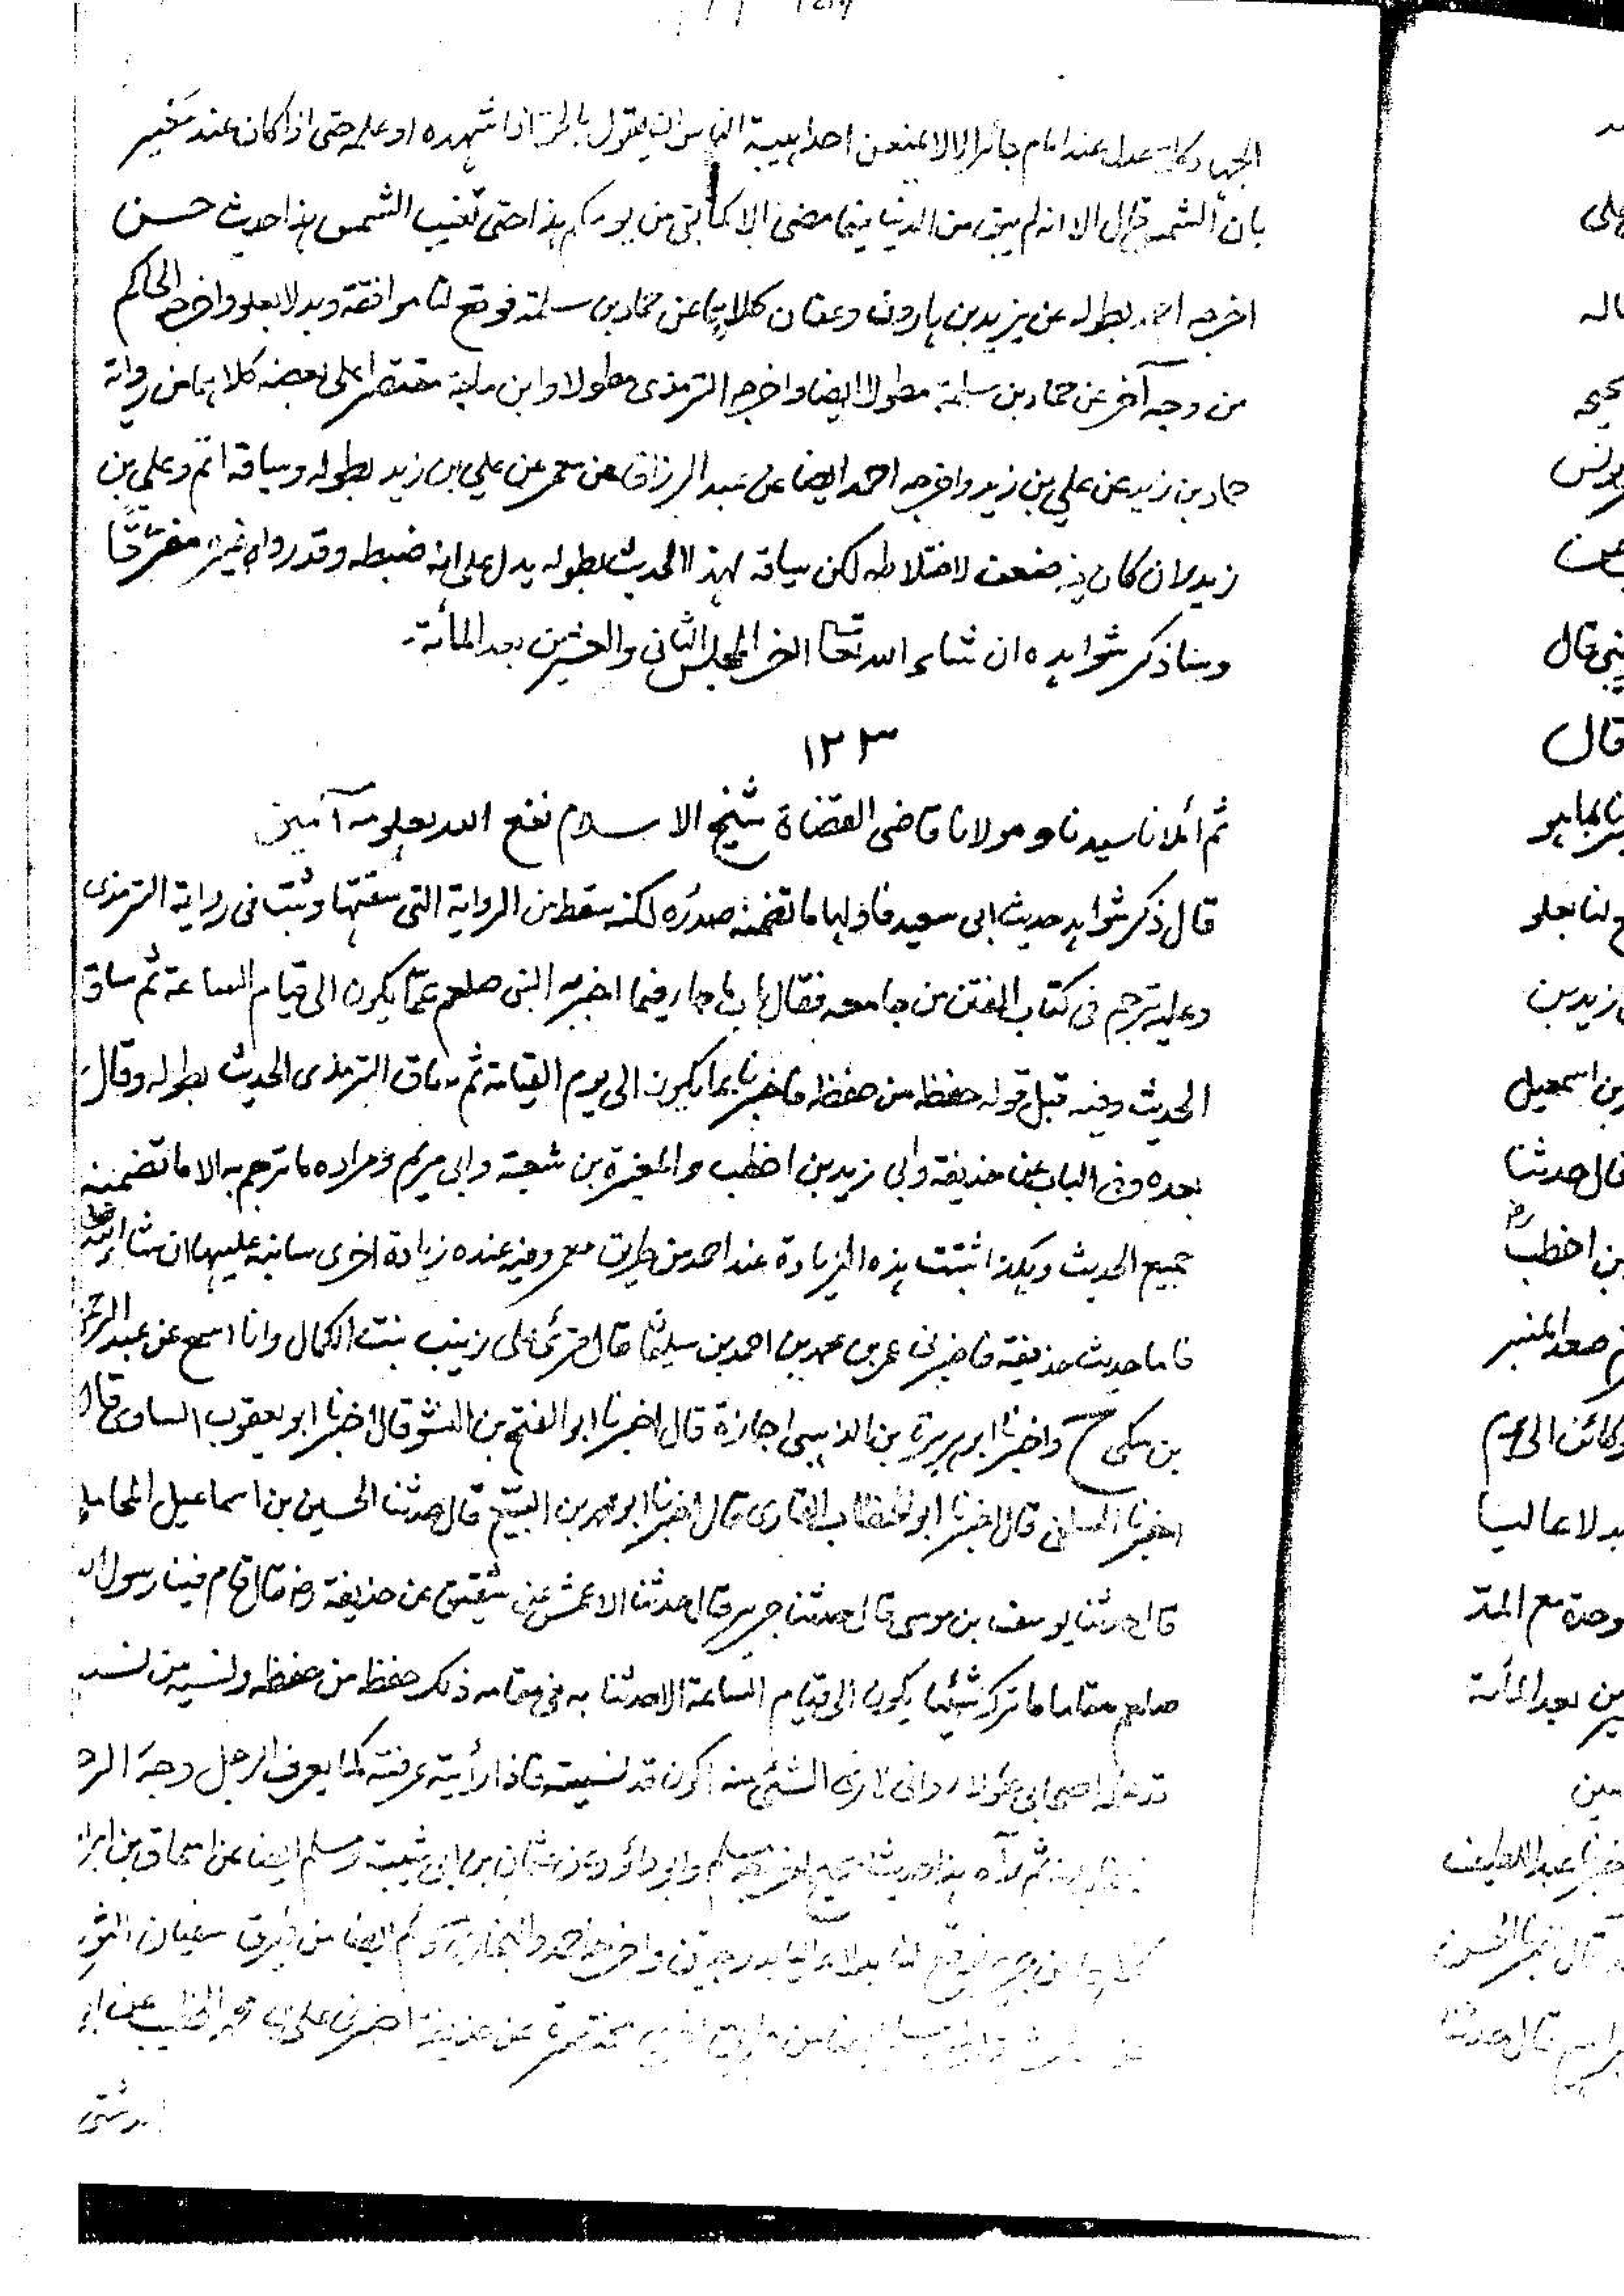 الجهاد كلمة عدل عند امام جائر الا لا يمنعن احدا هيبة الناس ان يقول بالحق اذا شهده او علمه حتى اذا كان عند مغير
بان الشمس قال الا انه لم يبق من الدنيا فيما مضى الا كما بقي من يومكم هذا حتى تغيب الشمس هذا حديث حسن
اخرجه احمد بطوله عن يزيد بن هارون وعفان كلاهما عن حماد بن سلمة فوقع لنا موافقة وبدلا بعلو واخرجه الحاكم
من وجه آخر عن حماد بن سلمة مطولا ايضا واخرجه الترمذى مطولا وابن ماجة مقتصرا على بعضه كلاهما من رواية
حماد بن زيد عن علي بن زيد واخرجه احمد ايضا عن عبد الرزاق عن معمر عن علي بن زيد بطوله وسياقه اتم وعلي بن
زيد وان كان فيه ضعف لاختلاطه لكن سياقه لهذا الحديث بطوله يدل على انه ضبطه وقد رواه غيره مفرقا
وسنا ذكر شواهده ان شاء الله تعا اخر المجلس الثاني والعشرين بعد المائة
١٢٣
ثم أملانا سيدنا ومولانا قاضى القضاة شيخ الاسلام نفع الله بعلومه آمين
قال ذكر شواهد حديث ابى سعيد فاولها ما تضمنه صدره لكنه سقط من الرواية التى سقتها وثبت فى رواية الترمذى
وعليه ترجم فى كتاب الفتن من جامعه فقال باب ما جاء فيما اخبر به النبى صلعم عما يكون الى قيام الساعة ثم ساق
الحديث وفيه قبل قوله حفظه من حفظه فاخبرنا بما يكون الى يوم القيامة ثم ساق الترمذى الحديث بطوله وقال
بعده وفى الباب عن حذيفة وابى زيد بن اخطب والمغيرة بن شعبة وابى مريم ومراده ما ترجم به الا ما تضمنه
جميع الحديث وهكذا ثبتت هذه الزيادة عند احمد من طريق معمر وفيه عنده زيادة اخرى سانبه عليها ان شاء الله
فاما حديث حذيفة فاخبرنى عمر بن محمد بن احمد بن سليمان قال قرئ على زينب بنت الكمال وانا اسمع عن عبد الرحمن
بن مكى ح واخبرنا ابو هريرة بن الذهبى اجازة قال اخبرنا ابو الفتح بن النشو قال اخبرنا ابو يعقوب الساوى قال
اخبرنا السلفى قال اخبرنا ابو الخطاب القارى قال اخبرنا ابو محمد بن البيع قال حدثنا الحسين بن اسماعيل المحاملى
قال حدثنا يوسف بن موسى قال حدثنا جرير قال حدثنا الاعمش عن شقيق عن حذيفة رض قال قام فينا رسول الله
صلعم مقاما ما ترك شيئا يكون الى قيام الساعة الا حدثنا به فى مقامه ذلك حفظ من حفظه ونسيه من نسيه
قد علمه اصحابى هؤلاء وانى لارى الشئ منه اكون قد نسيته فاذا رأيته عرفته كما يعرف الرجل وجه الر
ثم رآه هذا حديث صحيح اخرجه مسلم وابو داؤد عن عثمان بن ابى شيبة ومسلم ايضا عن اسحاق بن ابرا
كلاهما عن جرير فوقع لنا بدلا عاليا بدرجتين واخرجه احمد والبخارى ومسلم ايضا من طريق سفيان الثور
مسلم ايضا من طريق اخرى مختصرة عن حذيفة اخبرنى على بن محمد الخطيب عن ابى